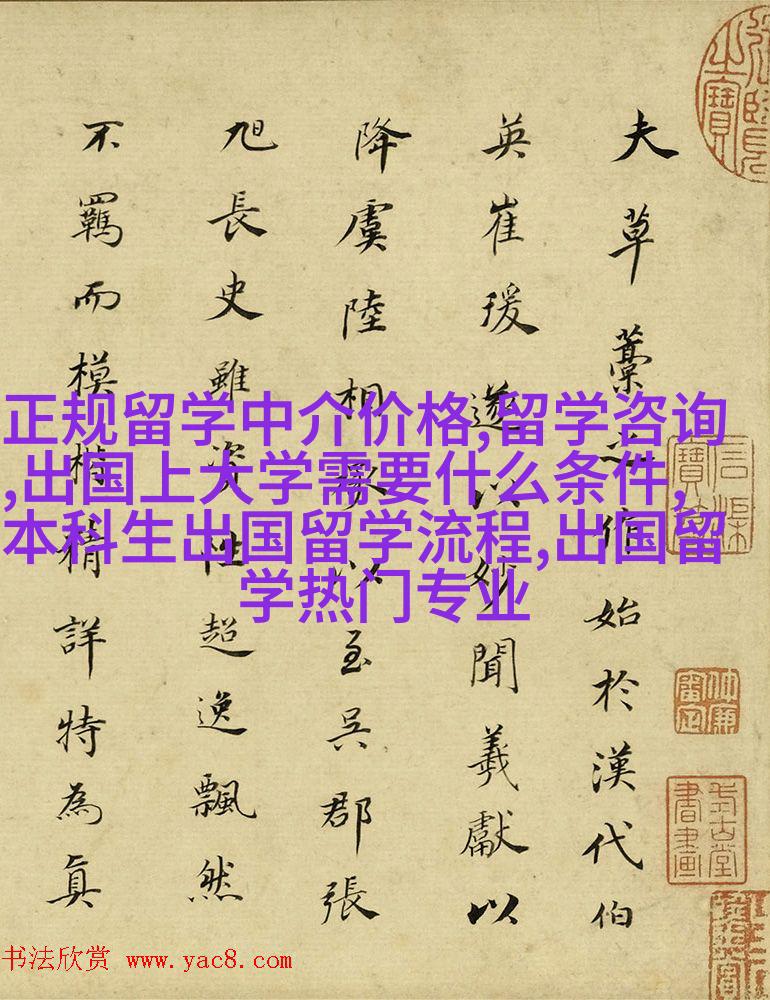 夫草藁之作始於漢代伯
英崔瑗遂以妙聞羲獻以
降虞陸相承以至吳郡張
旭長史雖姿性超逸飄然
不羈而模楷精詳特為真
正规留学中介价格,留学咨询
,出国上大学需要什么条件,
本科生出国留学流程,出国留
学热门专业
书法欣赏 www.yac8.com